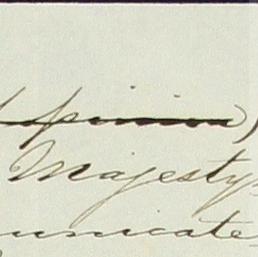 opinion)
Majesty
unicate